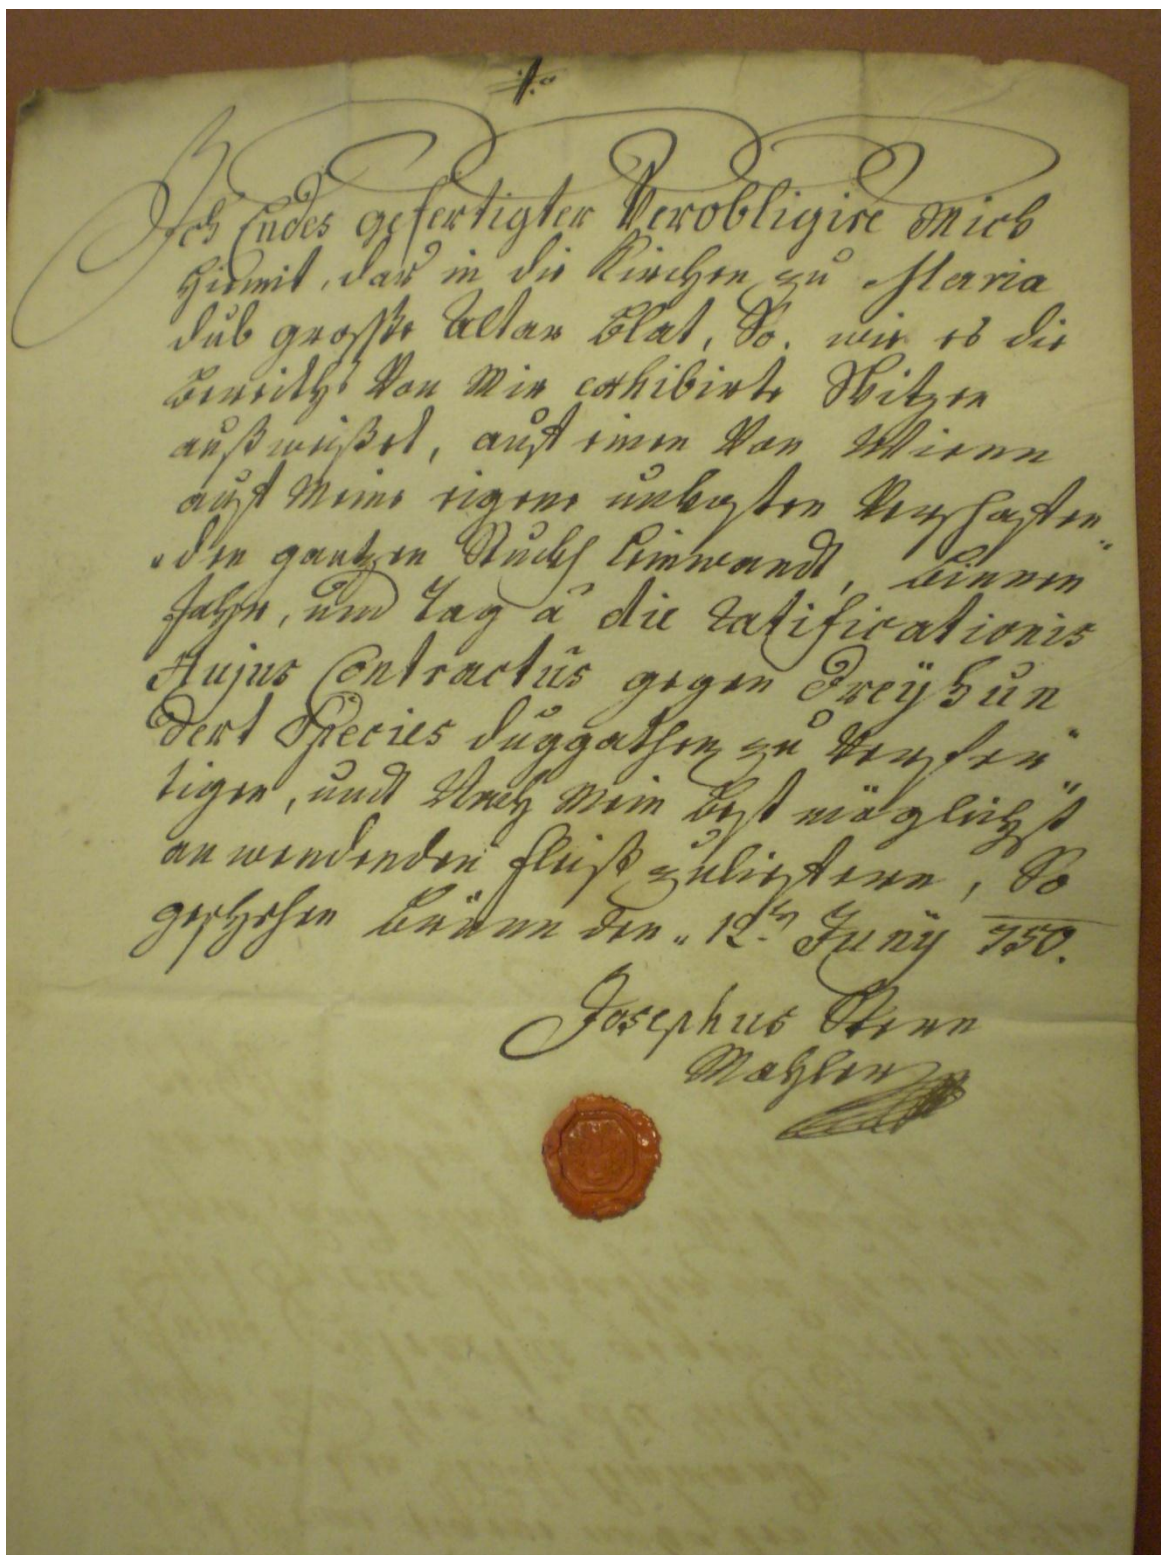 Ich Endes gefertigter Verobligire Mich
hiemit, das in die Kirchen zu Maria
dub grosse Altar Blat, So. wie es die
bereiths Von Mir exhibirte Skitzen
außweißet, auf einen Von Wienn
auf Meine eigene unkosten Verschaften„
„den gantzen Stuckh Leinwandt, binnen
Jahr, und Tag a die Ratificationis
Hujus Contractus gegen Dreÿhun
dert Species duggathen zu Verfer„
tigen, undt Nach Mein best möglichst
anwendenden fleiß zulieffern, So
geschehen Brünn den „ 12ten Junÿ 750.
Josephus Stern
Mahler